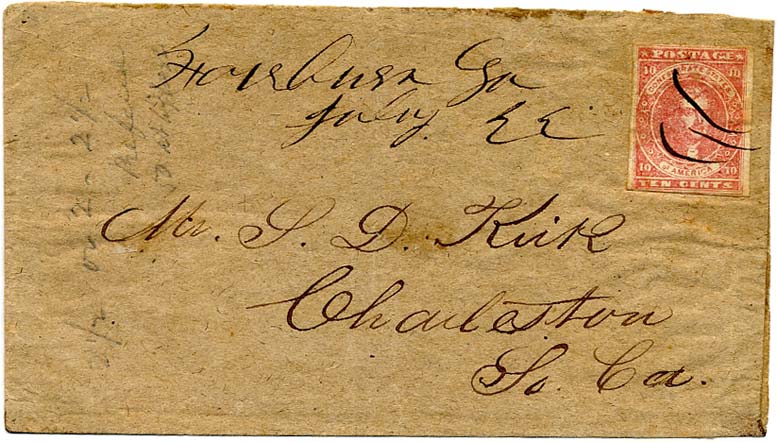 Fairburn Ga
July 22
POSTAGE
10 10
CONFEDERATE STATES
OF AMERICA
10 10
TEN CENTS
Mr. S. D. Kirk
Charleston
So. Ca.